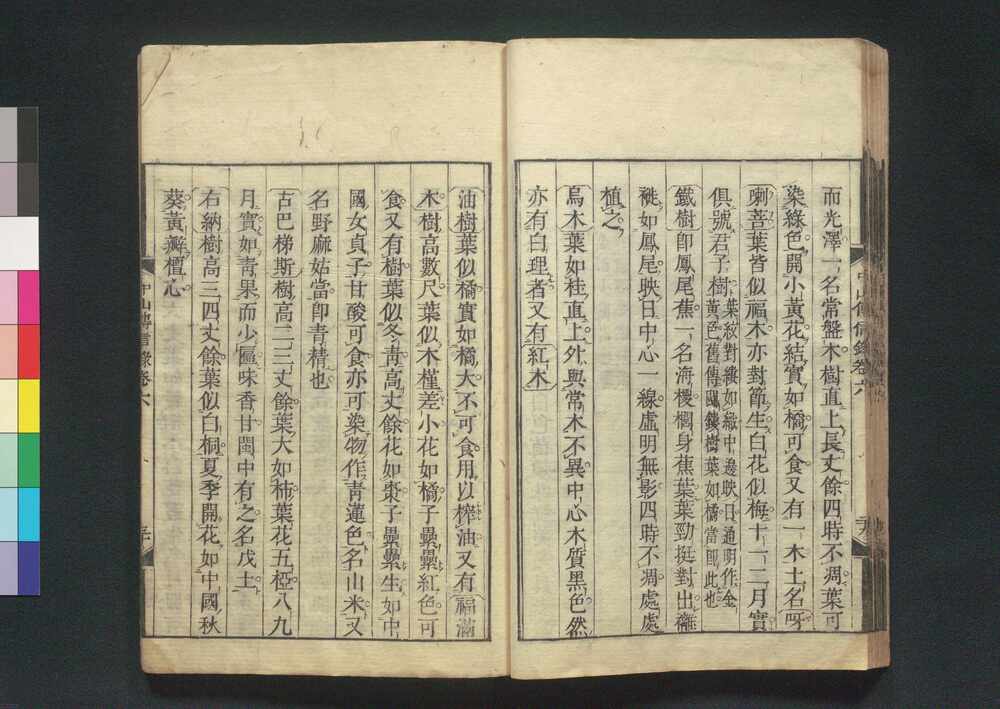 而光澤一名常盤木樹直上長丈餘四時不凋葉可
染綠色開小黃花結實如橘可食又有一木土名呀
喇菩葉皆似福木亦對節生白花似梅十一二月實
俱號君子樹葉紋對縷如織中邊映日通明作金
黃色舊傳國鏤樹葉如橘當卽此也
鐵樹卽鳳尾蕉一名海椶櫚身蕉葉葉勁挺對出襳
褷如鳳尾映日中心一線虛明無影四時不凋處處
植之
烏木葉如桂直上外與常木不異中心木質黑色然
亦有白理者又有紅木
中山傳信錄卷六
油樹葉似橘實如橘大不可食用以榨油又有福滿
木樹高數尺葉似木槿差小花如橘子纍纍紅色可
食又有樹葉似冬青高丈餘花如棗子纍纍生如中
國女貞子甘酸可食亦可染物作青蓮色名山米又
名野麻姑當卽青精也
古巴梯斯樹高二三丈餘葉大如柿葉花五椏八九
月實如青果而少匾味香甘閩中有之名戊土
右納樹高三四丈餘葉似白桐夏季開花如中國秋
葵黃瓣檀心
中山傳信錄卷六